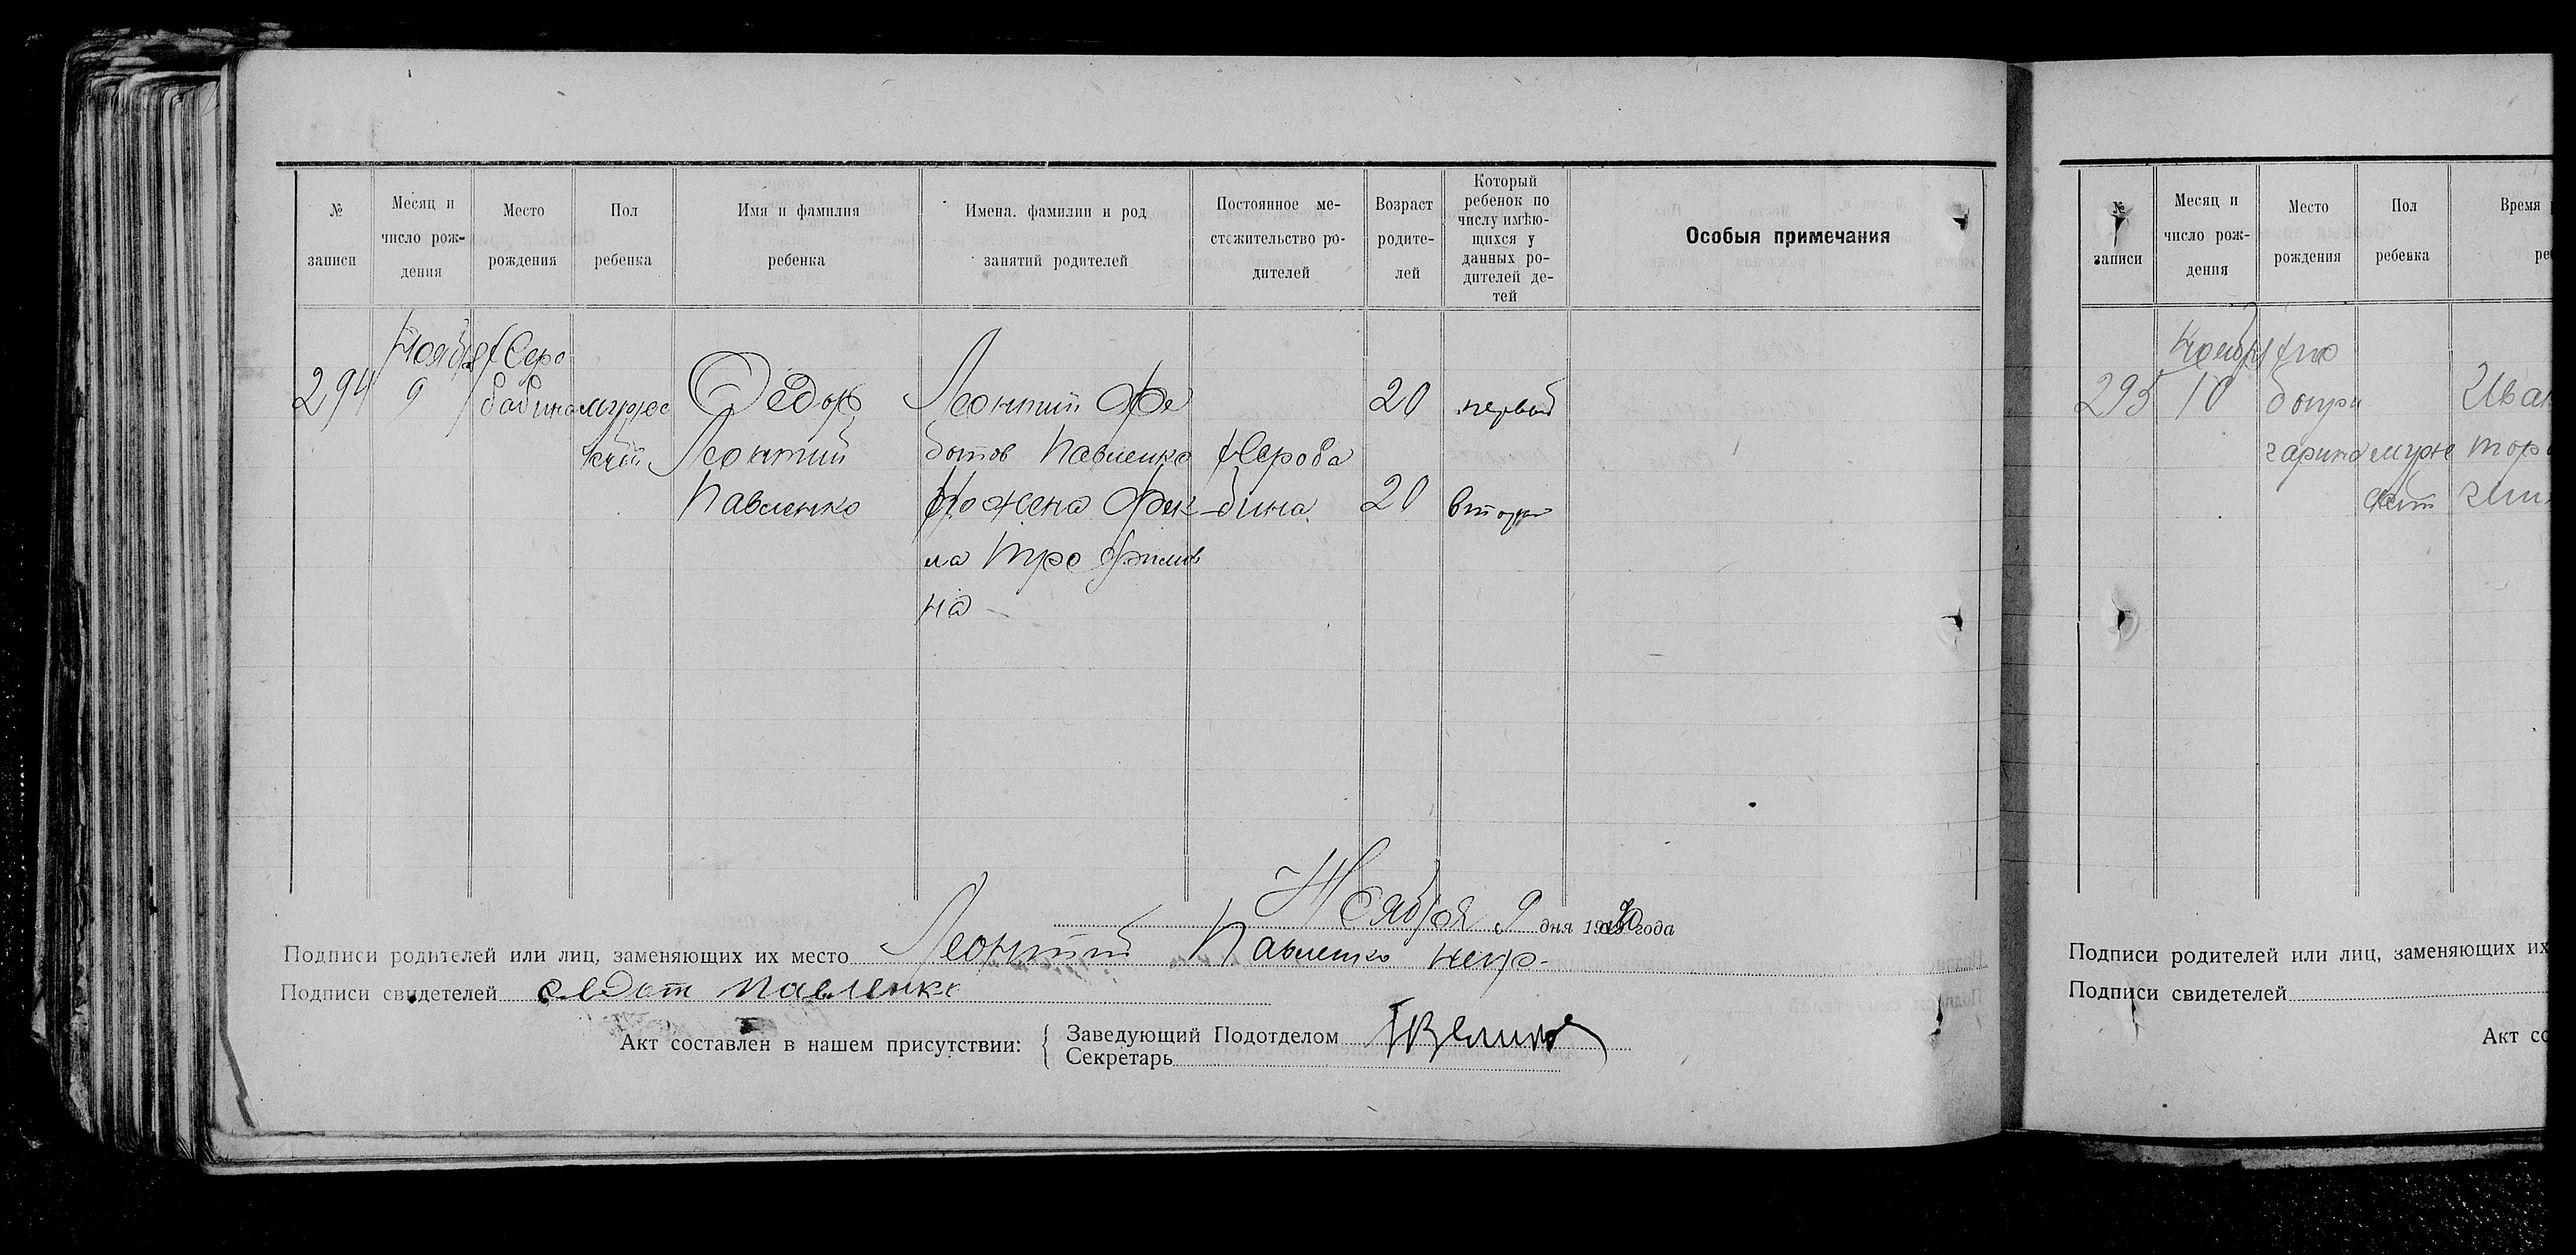 № записи
Месяц и число рождения
Место рождения
Пол ребенка
Имя и фамилия ребенка
Имена, фамилии и род занятий родителей
Постоянное местожительство родителей
Возраст родителей
Который ребенок по числу имѣющихся у данных родителей детей
Особыя примечания
294
Ноября
9
Серо
бабина
мужес
кий
Федор
Леонтий
Павленко
Леонтий Фе
дотов Павленко
жена Фек
ла Трофимов
на
Серова
бина
20
20
первый
второй
Ноября 9 дня 1920 года
Подписи родителей или лиц, заменяющих их место Леонтий Павленко негр.
Подписи свидетелей Федот Павленко
Акт составлен в нашем присутствии:
Заведующий Подотделом
Секретарь
№ записи
Месяц и число рождения
Место рождения
Пол ребенка
Время
295
Ноября
10
муж
Иван
Подписи родителей или лиц, заменяющих их
Подписи свидетелей
Акт со